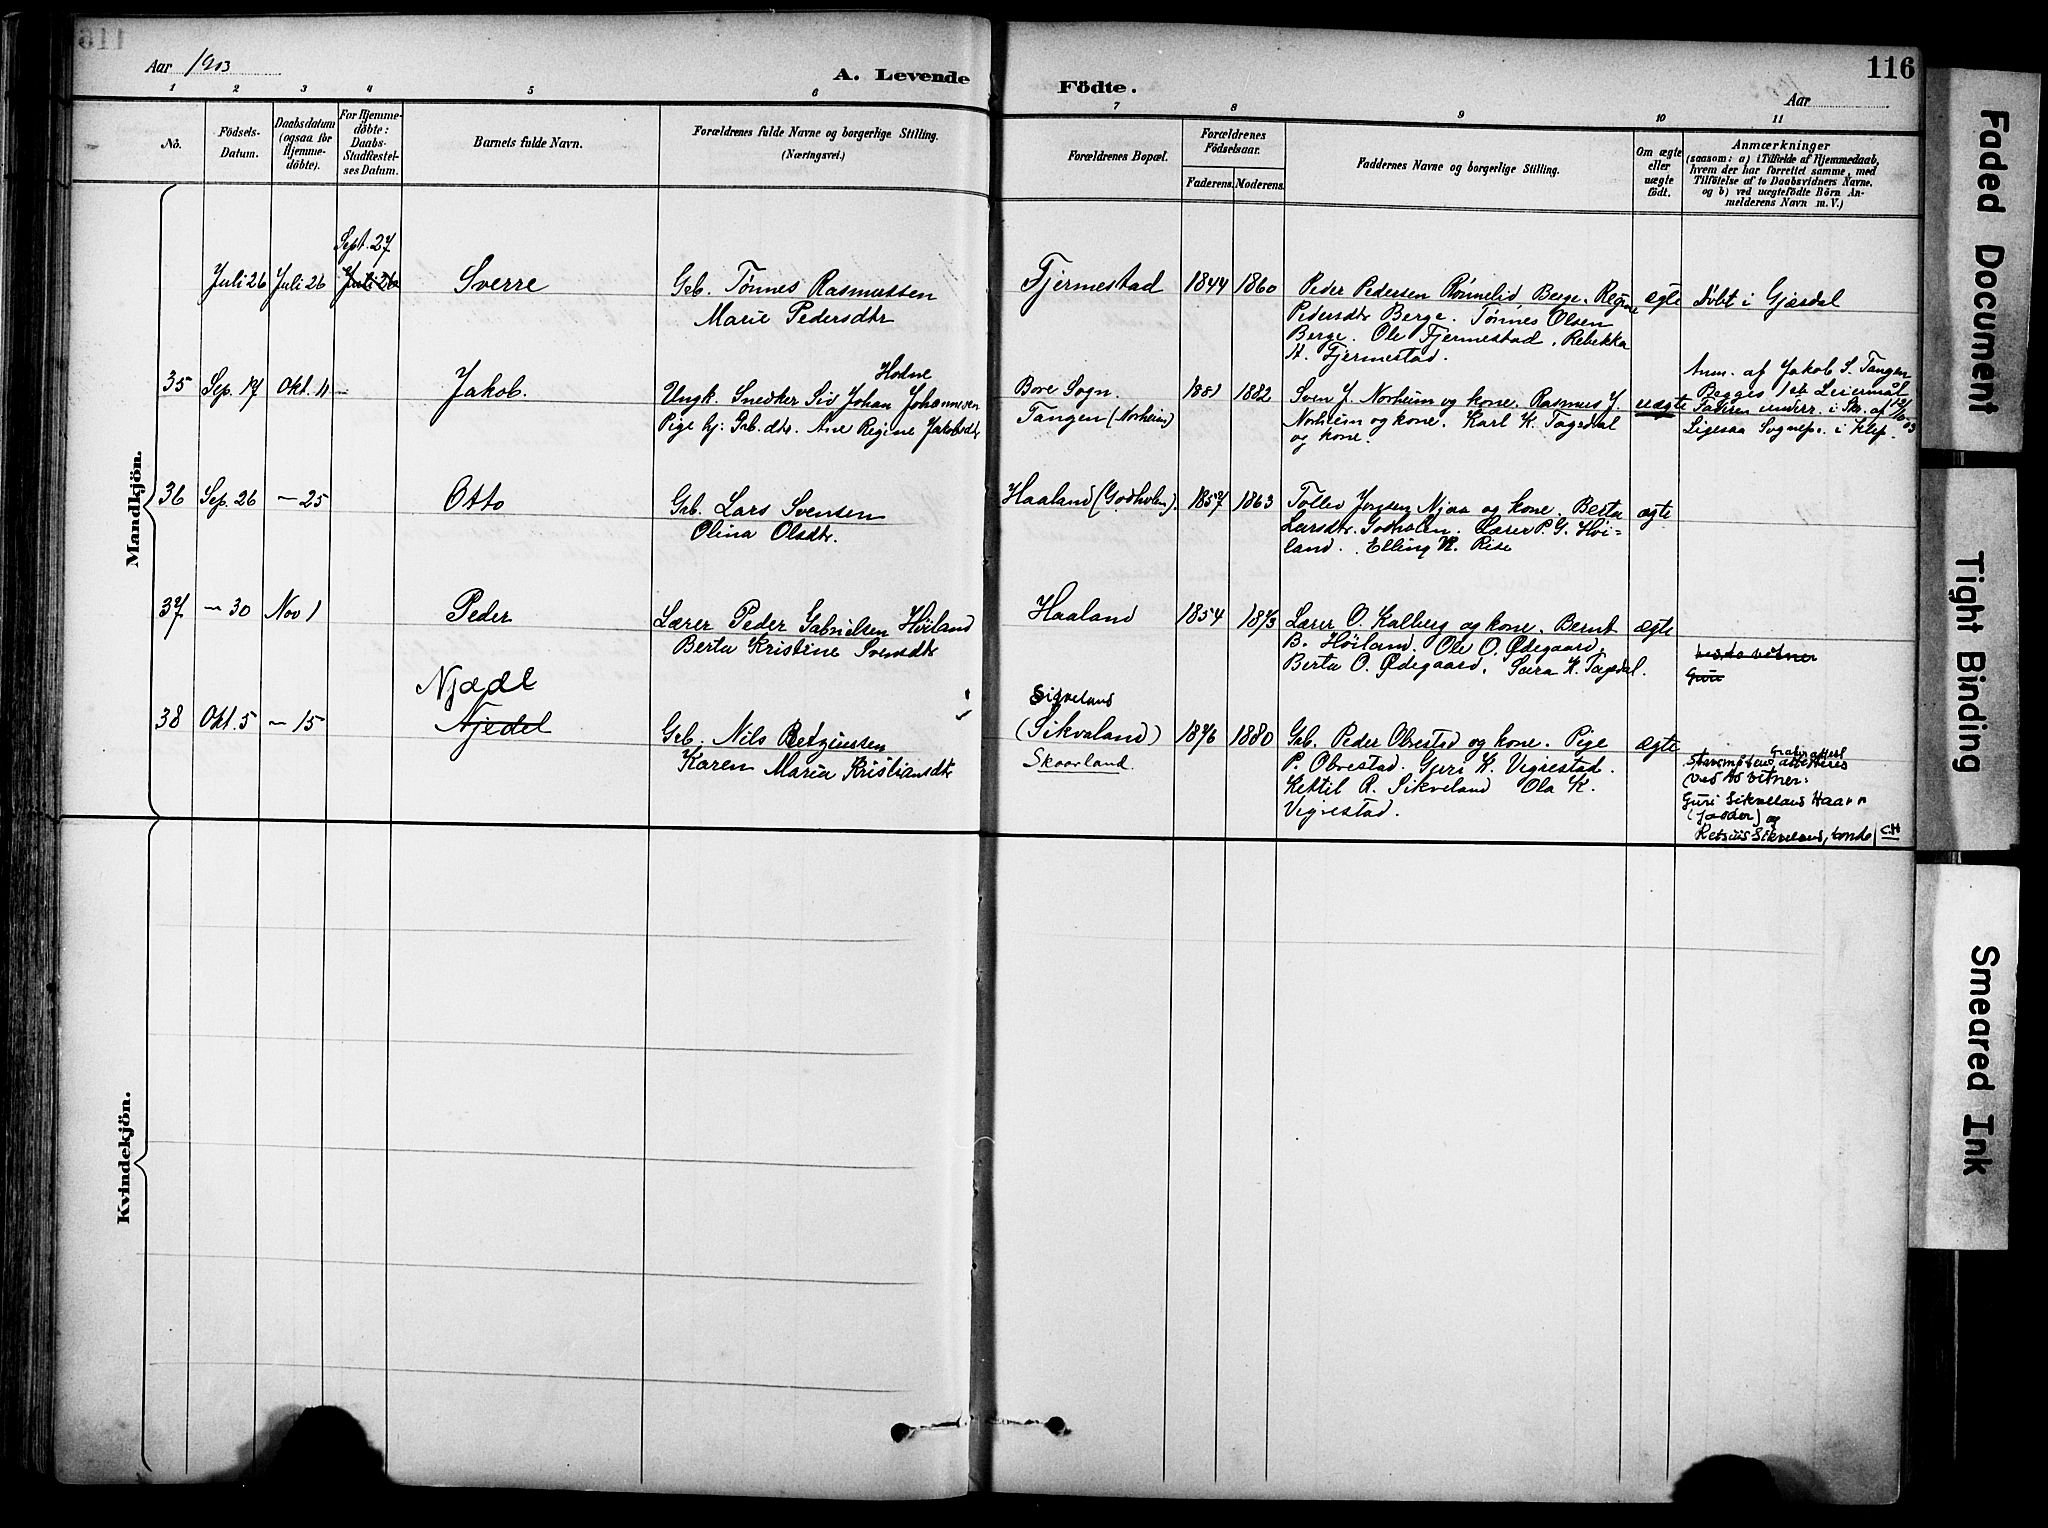 116
Aar 1903
A. Levende
Födte.
116
Aar
1 2 3 4 5 6 7 8 9 10 11
No.
Födsels-
Datum.
Daabsdatum
(ogsaa for
Hjemme-
döbte).
For Hjemme-
döbte:
Daabs-
Stadfæstel-
ses Datum.
Barnets fulde Navn.
Forældrenes fulde Navne og borgerlige Stilling.
(Næringsvei.)
Forældrenes Bopæl.
Forældrenes
Födselsaar.
Faderens. Moderens.
Faddernes Navne og borgerlige Stilling.
Om ægte
eller
uægte
födt.
Anmærkninger
(saasom: a) i Tilfælde af Hjemmedaab,
hvem der har forrettet samme, med
Tilföielse af to Daabsvidners Navne,
og b) ved uægtefödte Börn An-
melderens Navn m. V.)
Mandkjön.
Sept. 27
Juli 26 Juli 26 Juli 26 Sverre
Gb. Tønnes Rasmussen
Marie Pedersdtr
Fjermestad 1844 1860
Peder Pedersen Rønnelid, Berge. Regine
Pedersdtr Berge. Tønnes Olsen
Berge. Ole Fjermestad. Rebekka
H. Fjermestad.
ægte Døbt i Gjæsdal
35 Sep. 17 Okt. 11 — Jakob.
Hodne
Ungk. Snedker Siv Johan Johannesen
Pige hj: Gb. dtr. Ane Regine Jakobsdtr
Bore Sogn.
Tangen (Norheim)
1881 1882
Sven J. Norheim og kone. Rasmus J.
Norheim og kone. Karl K. Tagsdal
og kone.
uægte
Anm. af Jakob S. Tangen
Begges 1ste Leiermål
Faderen underr. i Sk. af 12/10 03
Ligesaa Sognep. i Klep.
36 Sep. 26 — 25 Otto
Gb. Lars Svensen
Olina Olsdtr.
Haaland (Godholen). 1857 1863
Tollev Jonsen Njaa og kone. Berta
Larsdtr. Godholen. Lærer P. G. Høi-
land. Elling K. Rise
ægte
37 — 30 Nov 1 Peder
Lærer Peder Gabrielsen Høiland
Berta Kristine Svensdtr
Haaland 1854 1873
Lærer O. Kalberg og kone. Bernt
B. Høiland. Ole O. Ødegaard.
Berta O. Ødegaard. Sara K. Tagsdal.
ægte
ved to vitner
Guri
Njædl
38 Okt. 5 — 15 Njedel
Gb. Nils Retsiussen
Karen Maria Kristiansdtr
Sikveland
(Sikvaland)
Skaarland.
1876 1880
Gb. Peder Obrestad og kone. Pige
P. Obrestad. Guri K. Vigrestad.
Kettil R. Sikveland Ola K.
Vigrestad.
ægte
ved to vitner:
Guri Sikveland Haarr
(fadder) og
Retsius Sikveland, bonde CH
Kvindekjön.
Faded Document
Tight Binding
Smeared Ink